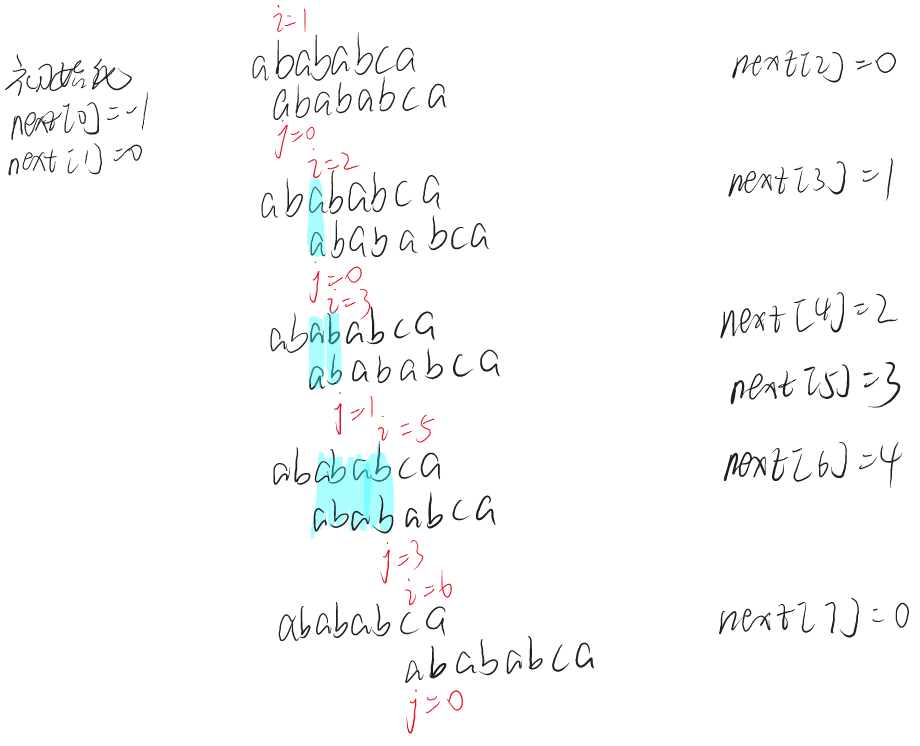 初始化
next[0]=-1
next[1]=0
i=1
abababca
abababca
j=0
next[2]=0
i=2
abababca
abababca
j=0
next[3]=1
i=3
abababca
abababca
j=1
next[4]=2
next[5]=3
i=5
abababca
abababca
j=3
next[6]=4
i=6
abababca
abababca
j=0
next[7]=0